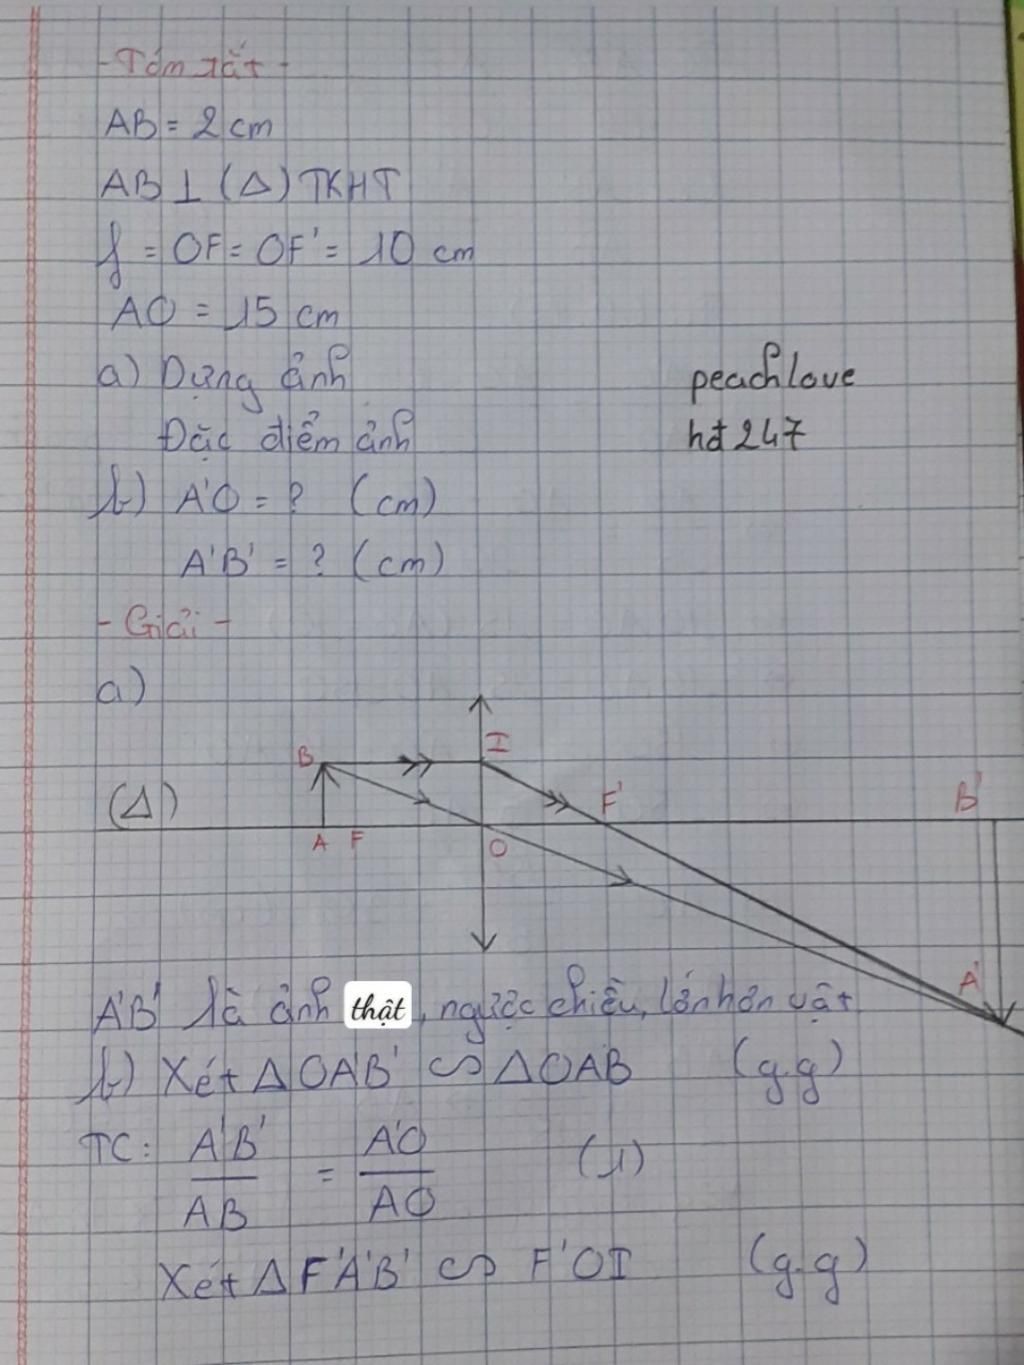 - Tóm tắt -
AB = 2 cm
AB ⊥ (Δ) TKHT
f = OF = OF' = 10 cm
AO = 15 cm
a) Dựng ảnh
Đặc điểm ảnh
b) A'O = ? (cm)
A'B' = ? (cm)
peachlove
hđ247
- Giải -
a)
B
I
(Δ)
F'
B'
A
F
O
A'
A'B' là ảnh thật, ngược chiều, lớn hơn vật
b) Xét ΔOA'B' ∽ ΔOAB (g.g)
TC: A'B'/AB = A'O/AO (1)
Xét ΔF'A'B' ∽ F'OI (g.g)